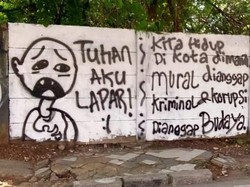 TUHAN
AKU
LAPAR!
:(
KITA HIDUP
DI KOTA DIMANA
MURAL DIANGGAP
KRIMINAL & KORUPSI
DIANGGAP BUDAYA